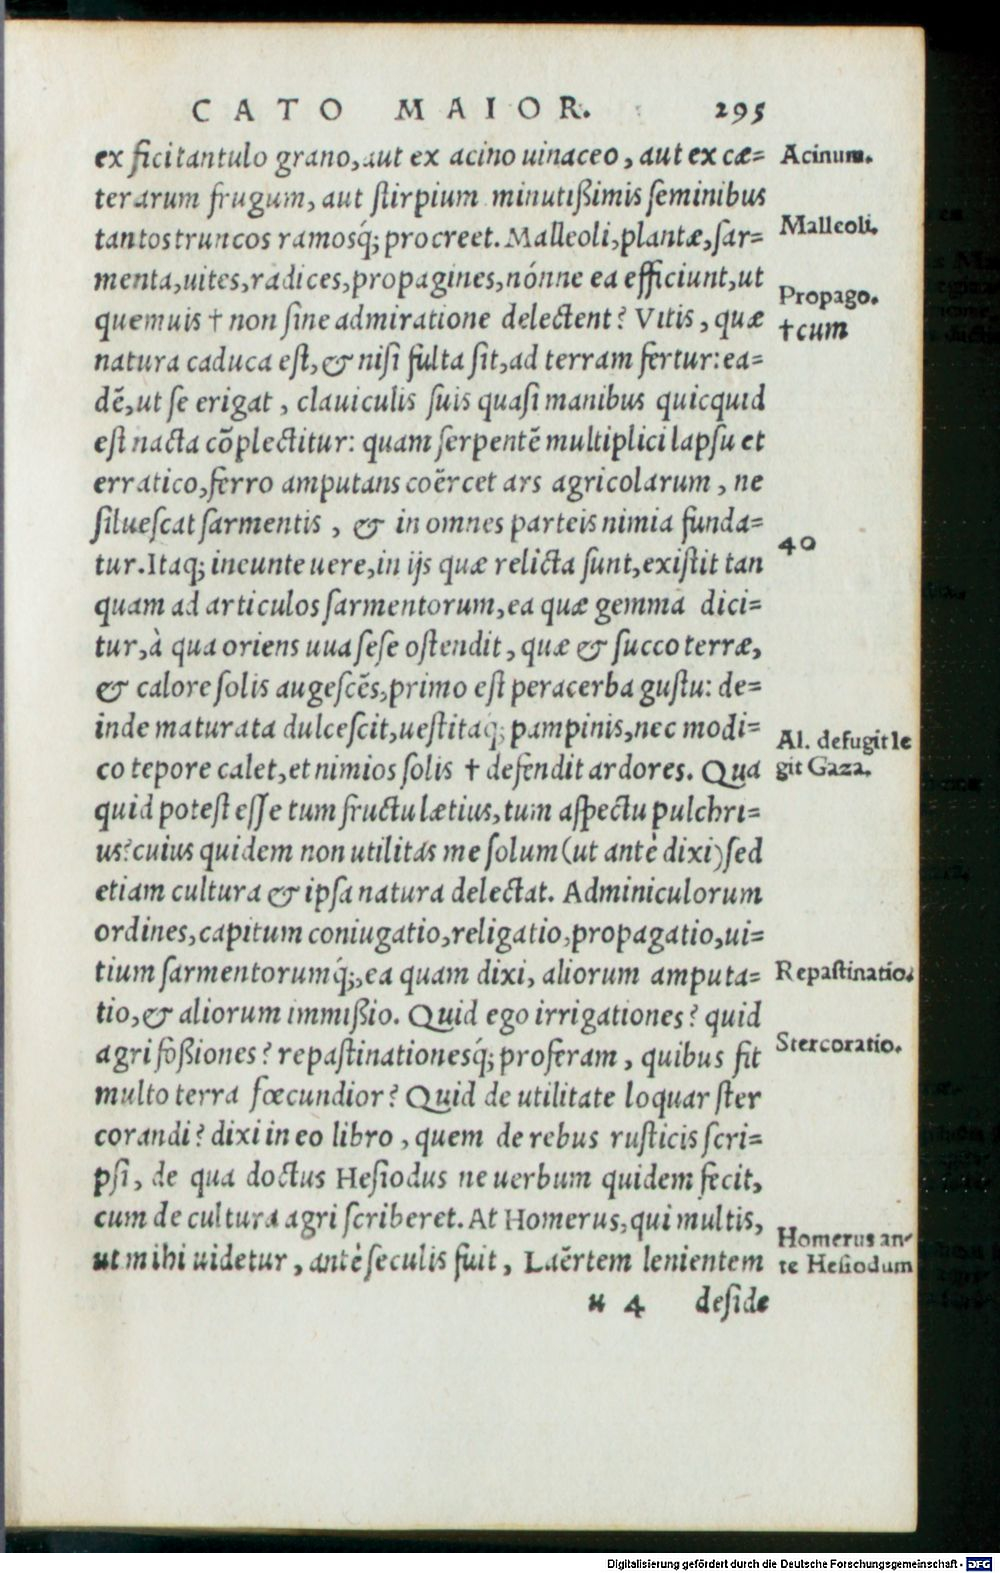 CATO MAIOR. 295
ex fici tantulo grano, aut ex acino uinaceo, aut ex cæ=
terarum frugum, aut stirpium minutißimis seminibus
tantos truncos ramosq́; procreet. Malleoli, plantæ, sar=
menta, uites, radices, propagines, nónne ea efficiunt, ut
quemuis † non sine admiratione delectent? Vitis, quæ
natura caduca est, & nisi fulta sit, ad terram fertur: ea=
dē, ut se erigat, clauiculis suis quasi manibus quicquid
est nacta cōplectitur: quam serpentē multiplici lapsu et
erratico, ferro amputans coërcet ars agricolarum, ne
siluescat sarmentis, & in omnes parteis nimia funda=
tur. Itaq; ineunte uere, in ijs quæ relicta sunt, existit tan
quam ad articulos sarmentorum, ea quæ gemma dici=
tur, à qua oriens uua sese ostendit, quæ & succo terræ,
& calore solis augescēs, primo est peracerba gustu: de=
inde maturata dulcescit, uestitaq; pampinis, nec modi=
co tepore calet, et nimios solis † defendit ardores. Qua
quid potest esse tum fructu lætius, tum aspectu pulchri=
us? cuius quidem non utilitas me solum (ut antè dixi) sed
etiam cultura & ipsa natura delectat. Adminiculorum
ordines, capitum coniugatio, religatio, propagatio, ui=
tium sarmentorumq́;, ea quam dixi, aliorum amputa=
tio, & aliorum immißio. Quid ego irrigationes? quid
agri foßiones? repastinationesq́; proferam, quibus fit
multo terra fœcundior? Quid de utilitate loquar ster
corandi? dixi in eo libro, quem de rebus rusticis scri=
psi, de qua doctus Hesiodus ne uerbum quidem fecit,
cum de cultura agri scriberet. At Homerus, qui multis,
ut mihi uidetur, antè seculis fuit, Laërtem lenientem
u 4 deside
Acinum.
Malleoli.
Propago.
†cum
40
Al. defugit le
git Gaza.
Repastinatio.
Stercoratio.
Homerus an-
te Hesiodum
Digitalisierung gefördert durch die Deutsche Forschungsgemeinschaft - DFG